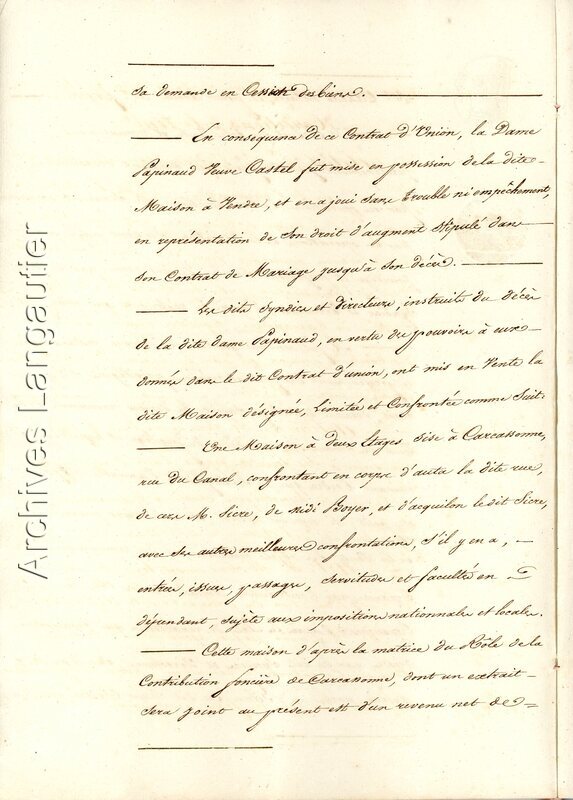 sa demande en Cession des biens.
En conséquence de ce Contrat d'Union, la Dame
Papinaud Veuve Castel fut mise en possession de la dite
Maison à Vendre, et en a joui sans trouble ni empêchement,
en représentation de son droit d'augment stipulé dans
son Contrat de Mariage jusqu'à son décès.
Les dits Syndics et directeurs, instruits du décès
de la dite dame Papinaud, en vertu des pouvoirs à eux
donnés dans le dit Contrat d'union, ont mis en Vente la
dite Maison désignée, Limitée et Confrontée comme Suit:
Une Maison à deux Etages sise à Carcassonne,
rue du Canal, confrontant en corps d'auta la dite rue,
de cers M. Sicre, de midi Boyer, et d'acquilon le dit Sicre,
avec ses autres meilleures confrontations, s'il y en a,
entrées, issues, passages, servitudes et facultés en
dépendant, sujète aux impositions nationnales et locales.
Cette maison d'après la matrice du Rôle de la
Contribution foncière de Carcassonne, dont un extrait
sera joint au présent est d'un revenu net de
Archives Langautier